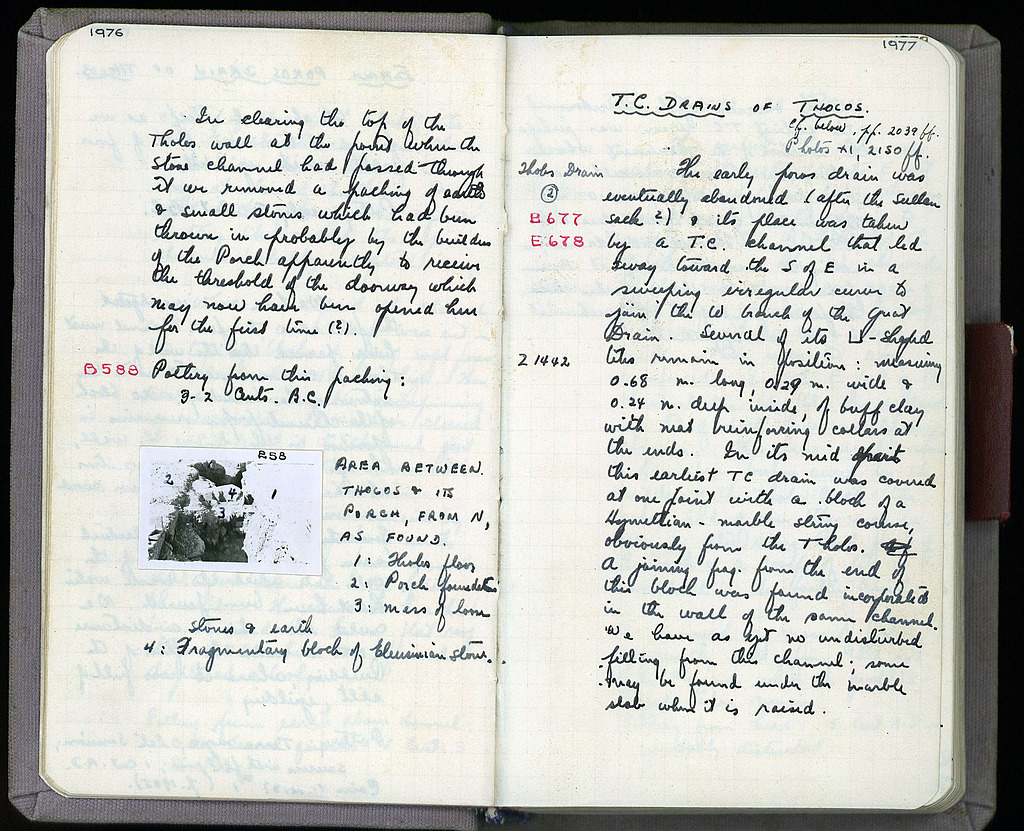 1976
In clearing the top of the
Tholos wall at the point where the
stone channel had passed through
it we removed a packing of earth
& small stones which had been
thrown in probably by the builders
of the Porch apparently to receive
the threshold of the doorway which
may now have been opened here
for the first time (?)
B588 Pottery from this packing:
3-2 Cents. B.C.
B58
2
4
1
3
AREA BETWEEN
THOLOS & ITS
PORCH, FROM N,
AS FOUND.
1: Tholos floor
2: Porch foundation
3: mass of loose
stones & earth
4: Fragmentary block of Eleusinian stone.
1977
T.C. DRAINS OF THOLOS.
cf. below, pp. 2039 ff.
Photos XI, 2150 ff.
Tholos Drain
2
B677
E678
Z1442
The early poros drain was
eventually abandoned (after the Sullan
sack?) & its place was taken
by a T.C. channel that led
away toward the S of E in a
sweeping irregular curve to
join the W branch of the Great
Drain. Several of its ⊔-shaped
tiles remain in position: measuring
0.68 m. long, 0.29 m. wide &
0.24 m. deep inside, of buff clay
with neat reinforcing collars at
the ends. In its mid part
this earliest TC drain was covered
at one point with a block of a
Hymettian-marble string course,
obviously from the Tholos.
A joining frag. from the end of
this block was found incorporated
in the wall of the same channel.
We have as yet no undisturbed
filling from this channel; some
may be found under the marble
slab when it is raised.